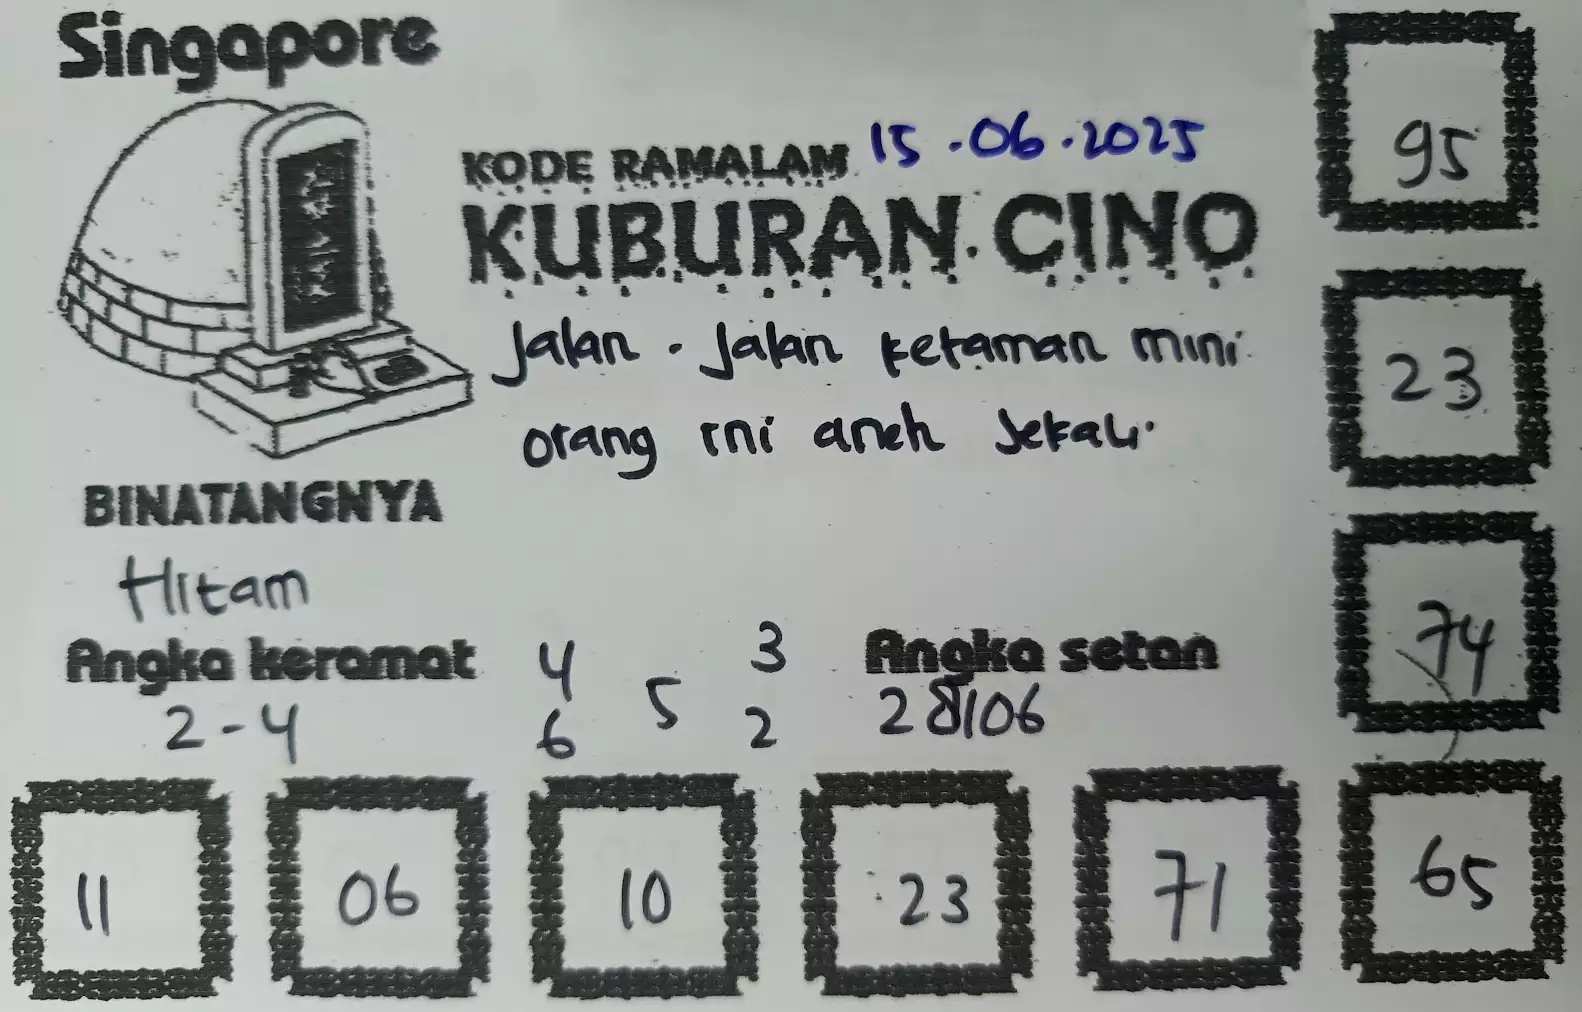 Singapore
KODE RAMALAM 15-06-2025
KUBURAN CINO
Jalan - Jalan ketaman mini
orang ini aneh sekali
BINATANGNYA
Hitam
Angka keramat
2-4
4 3
5
6 2
Angka setan
28106
95
23
74
65
11 06 10 23 71